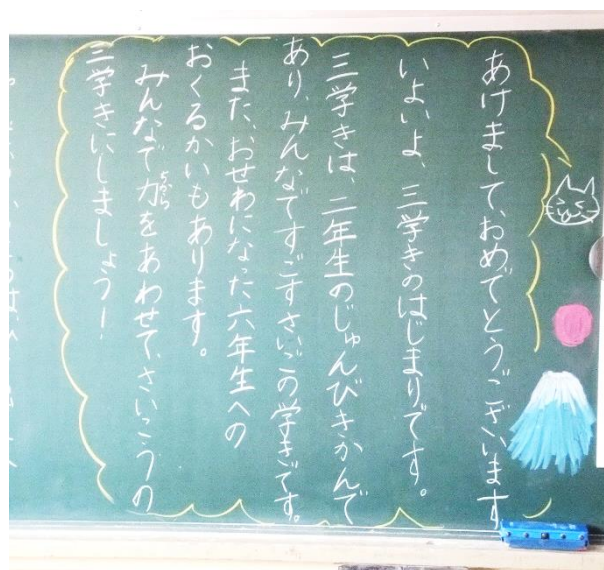 あけまして、おめでとうございます
いよいよ、三学きのはじまりです。
三学きは、二年生のじゅんびきかんで
あり、みんなですごすさいごの学きです。
また、おせわになった六年生への
おくるかいもあります。
みんなで力をあわせて、さいこうの
ちから
三学きにしましょう!